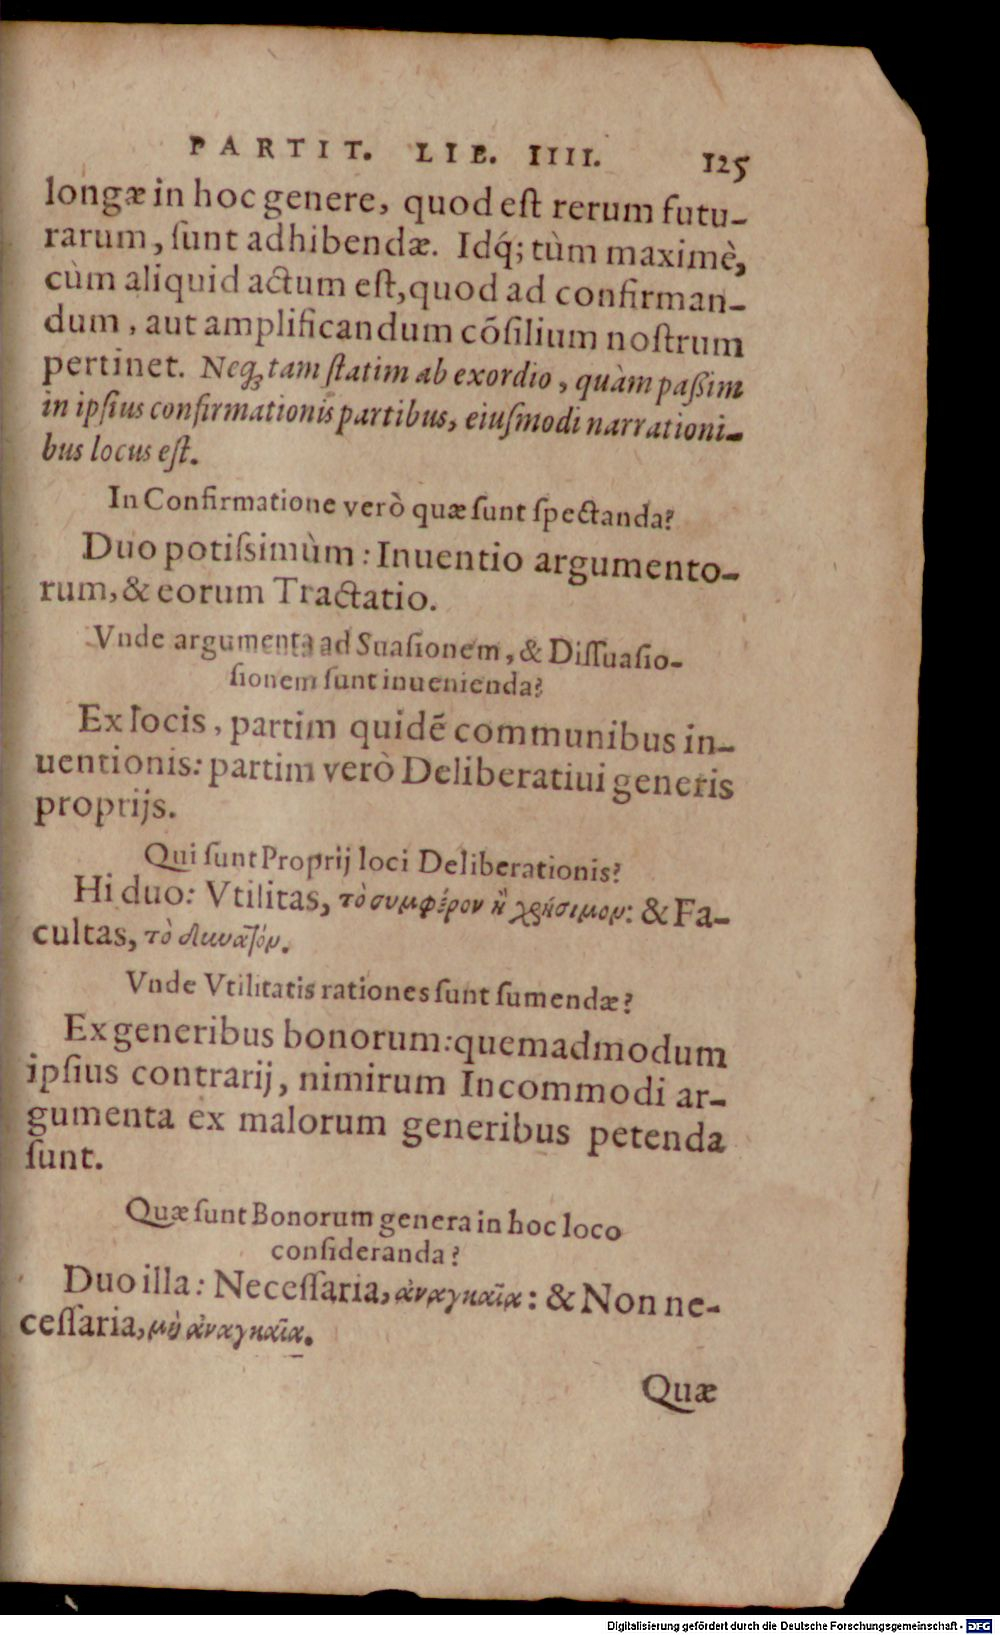 PARTIT. LIB. IIII. 125
longæ in hoc genere, quod eſt rerum futu-
rarum, ſunt adhibendæ. Idq́; tùm maximè,
cùm aliquid actum eſt, quod ad confirman-
dum, aut amplificandum cõſilium noſtrum
pertinet. Neq; tam ſtatim ab exordio, quàm paßim
in ipſius confirmationis partibus, eiuſmodi narrationi-
bus locus eſt.
In Confirmatione verò quæ ſunt ſpectanda?
Duo potiſsimùm: Inuentio argumento-
rum, & eorum Tractatio.
Vnde argumenta ad Suaſionem, & Diſſuaſio-
ſionem ſunt inuenienda?
Ex locis, partim quidẽ communibus in-
uentionis: partim verò Deliberatiui generis
proprijs.
Qui ſunt Proprij loci Deliberationis?
Hi duo: Vtilitas, τὸ συμφέρον ἢ χρήσιμον: & Fa-
cultas, τὸ δυνατόν.
Vnde Vtilitatis rationes ſunt ſumendæ?
Ex generibus bonorum: quemadmodum
ipſius contrarij, nimirum Incommodi ar-
gumenta ex malorum generibus petenda
ſunt.
Quæ ſunt Bonorum genera in hoc loco
conſideranda?
Duo illa: Neceſſaria, ἀναγκαῖα: & Non ne-
ceſſaria, μὴ ἀναγκαῖα.
Quæ
Digitalisierung gefördert durch die Deutsche Forschungsgemeinschaft - DFG